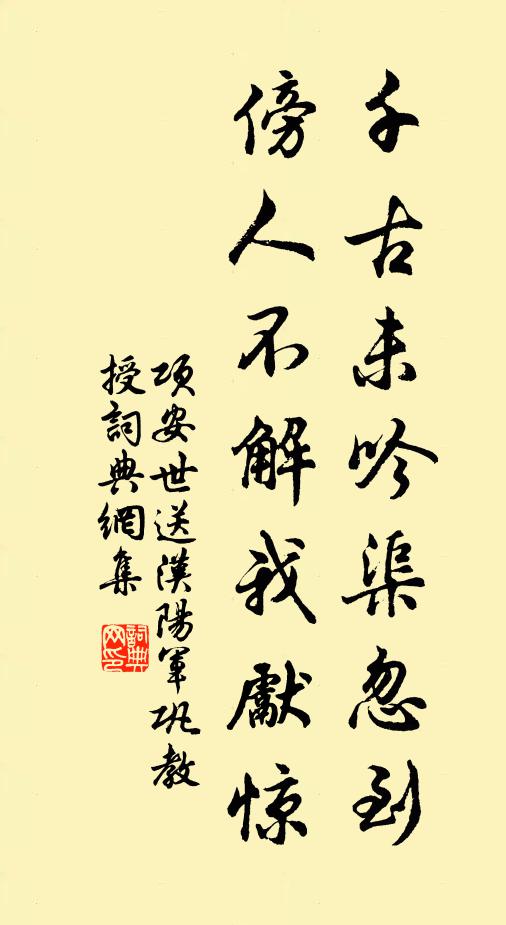 千古未吟渠忽到
傍人不解我獻惊
項安世送漢陽軍巩教
授詞典網集
詞典网印